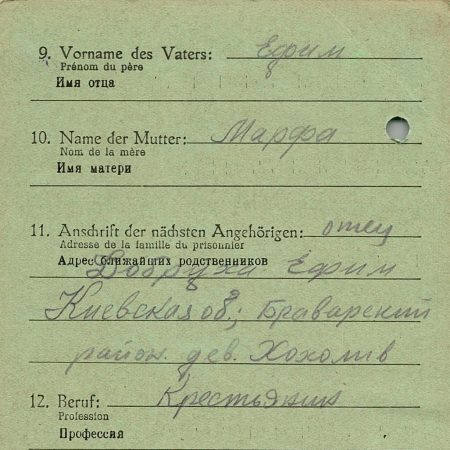 9. Vorname des Vaters: Ефим
Prénom du père
Имя отца
10. Name der Mutter: Марфа
Nom de la mère
Имя матери
11. Anschrift der nächsten Angehörigen: отец
Adresse de la famille du prisonnier
Адрес ближайших родственников
Добруха Ефим
Киевская об; Браварский
район. дев. Хохолив
12. Beruf: Крестьянин
Profession
Профессия